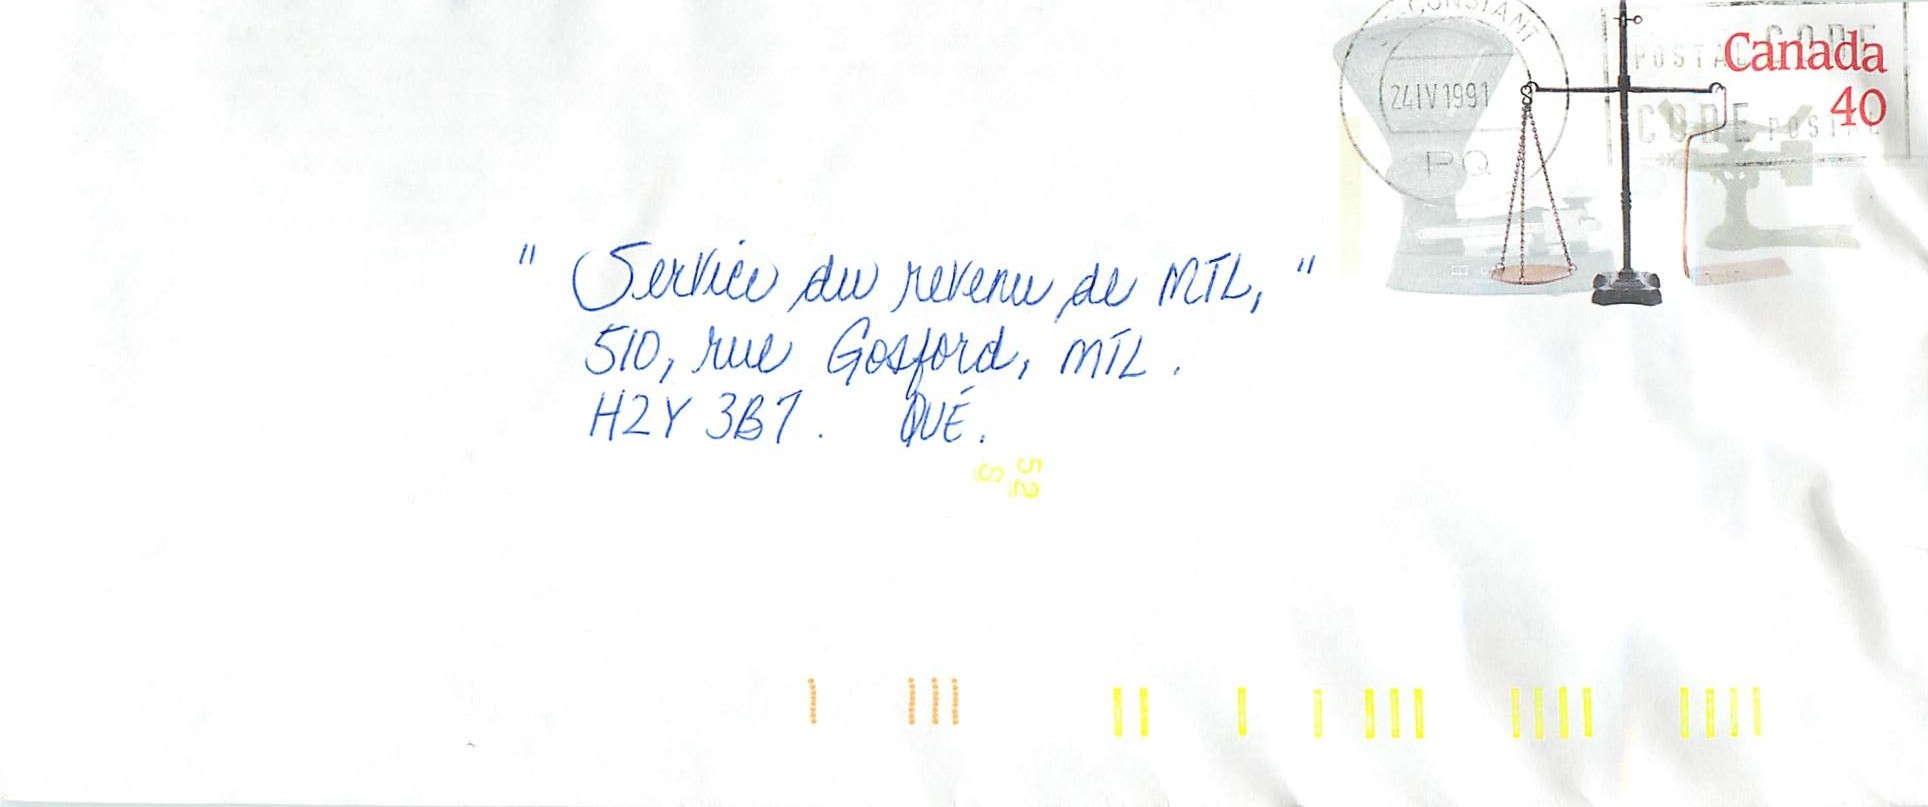 CONSTANT
24 IV 1991
PQ
POSTAL CODE
CODE POSTAL
Canada
40
" Service du revenu de MTL, "
510, rue Gosford, MTL.
H2Y 3B7. QUÉ.
52
S